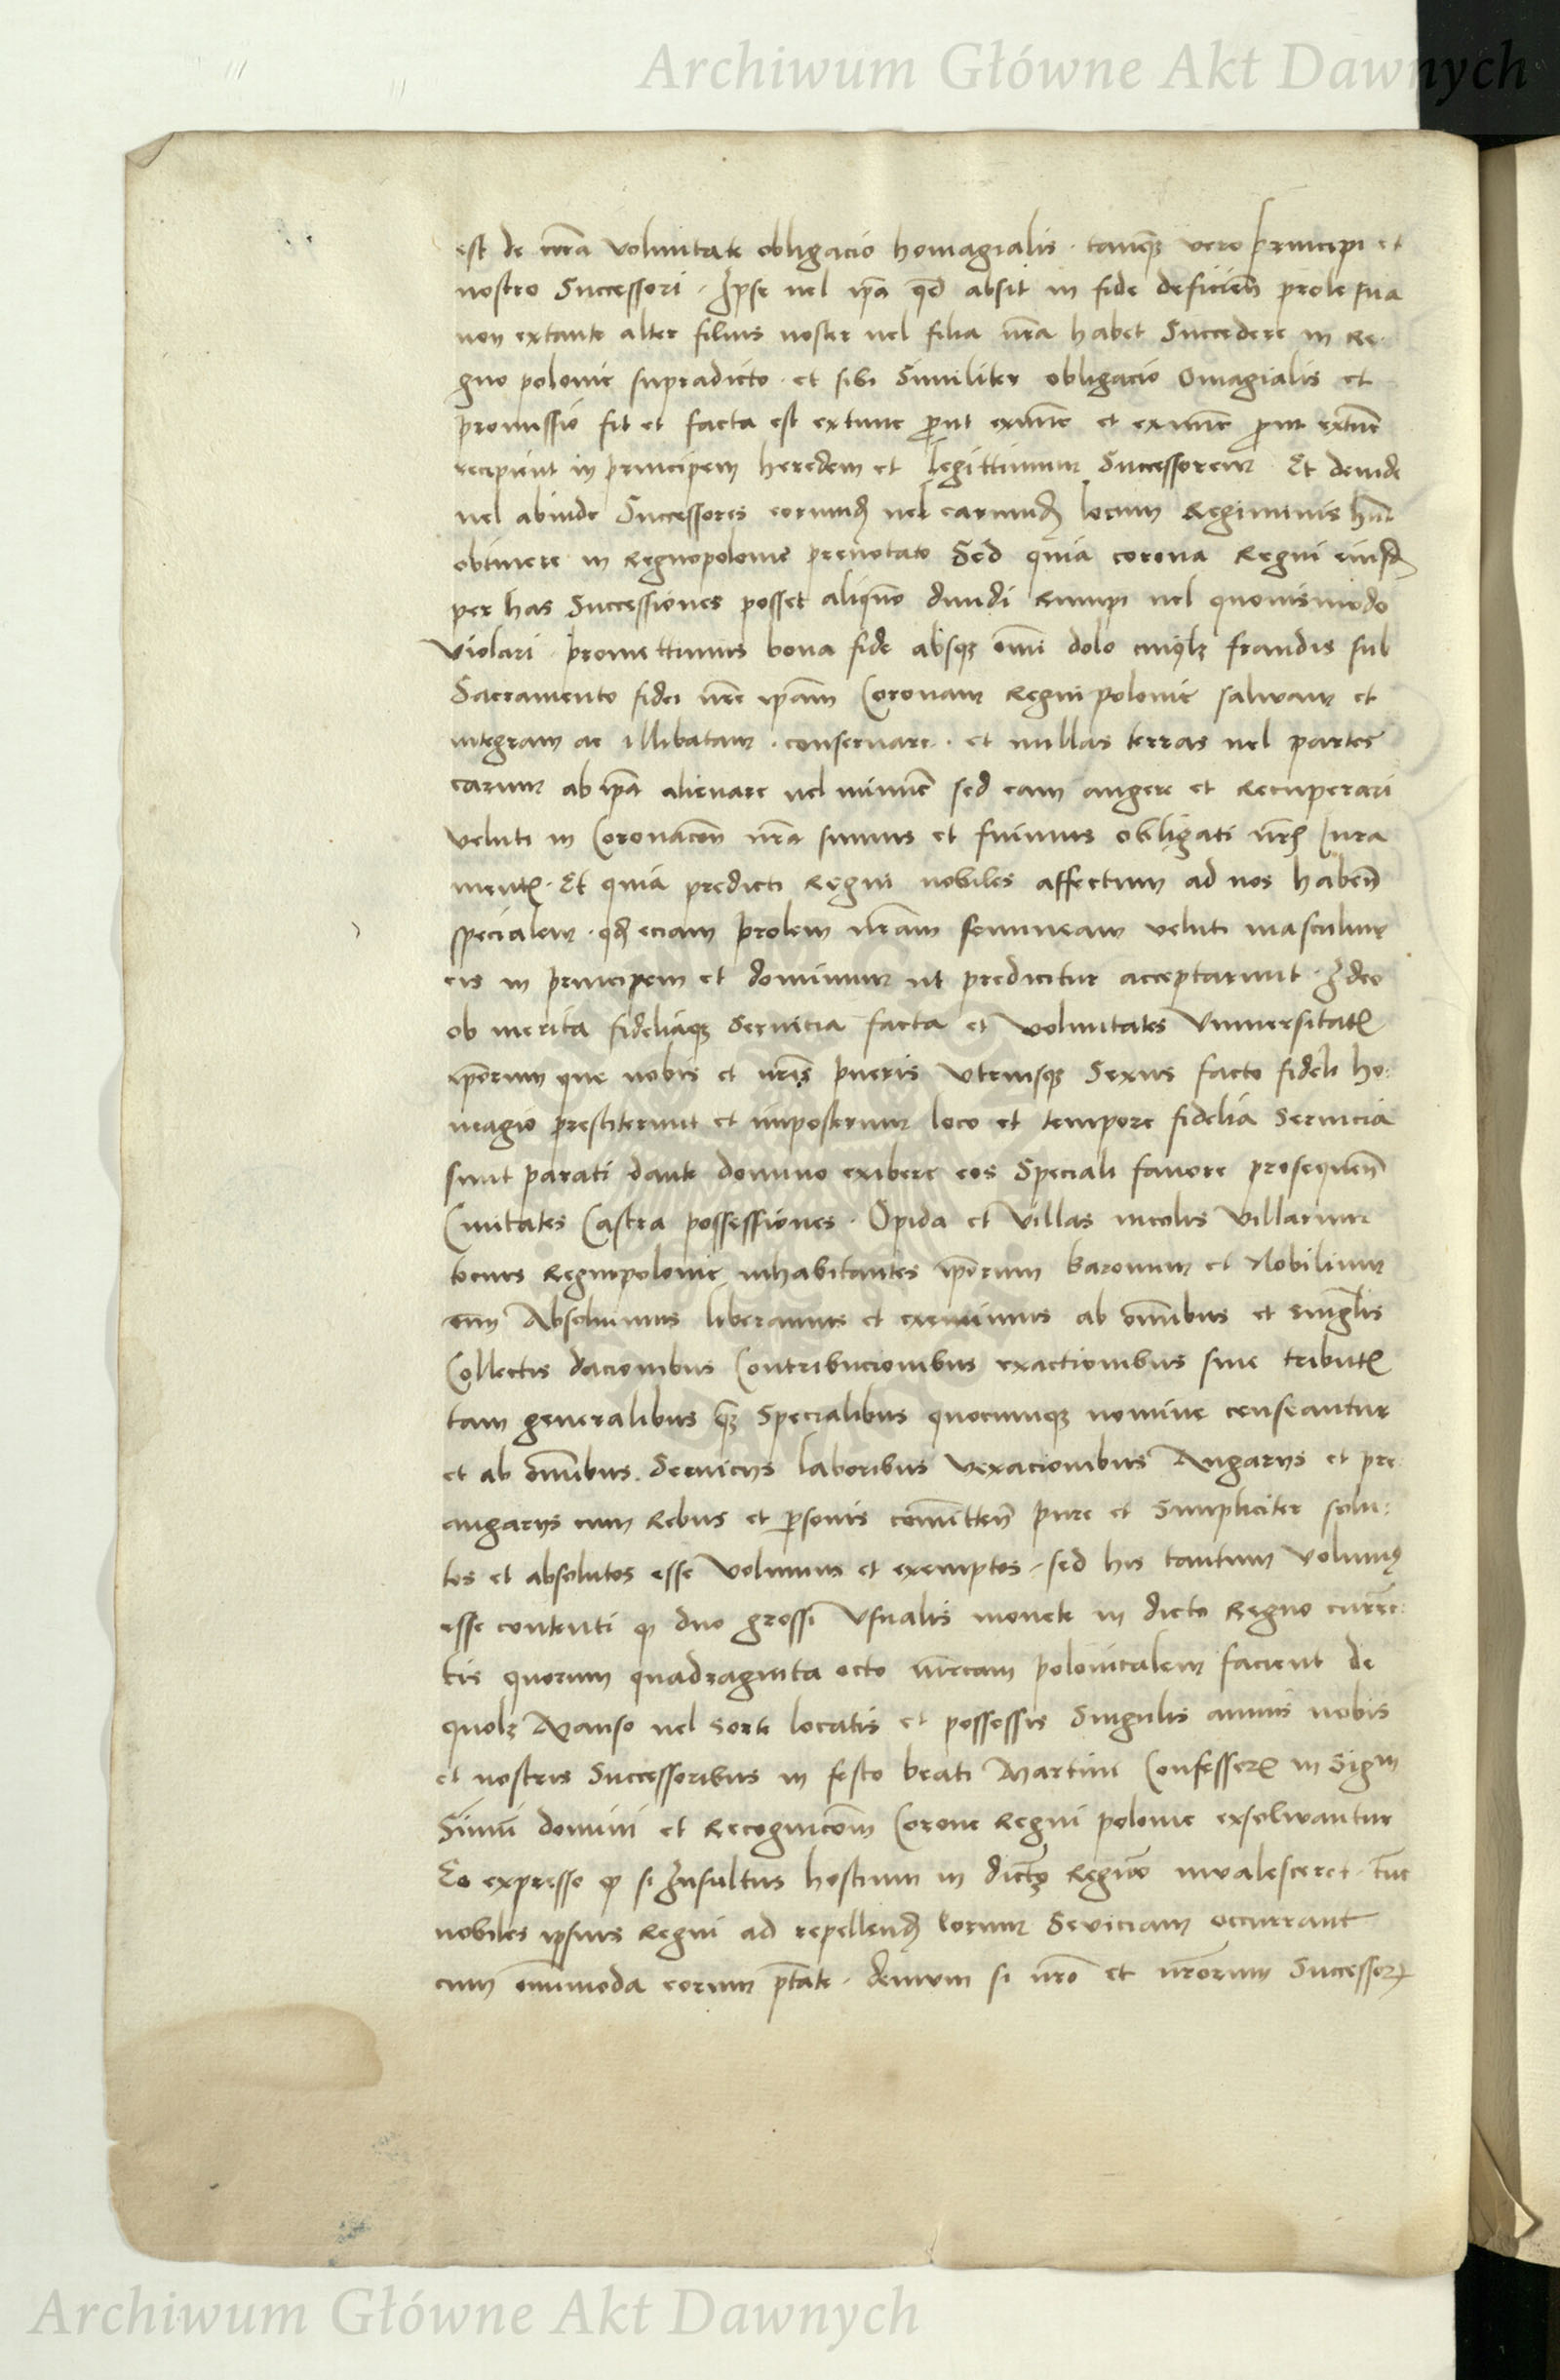 Archiwum Główne Akt Dawnych
est de nr̄a voluntate obligacio homagialis · tanqꝫ vero principi et
nostro Successori · Ipse vel ip̄a qd̄ absit in fide deficien̄ prole sua
non extante alter filius noster vel filia nr̄a habet Succedere in Re-
gno polonie supradicto · et sibi Similiter obligacio Omagialis et
promissio fit et facta est extunc ꝓut exnūc et exnūc ꝓut extūc
recipient in principem heredem et legittimum Successorem Et deinde
vel abinde Successores eorundꝫ vel earundꝫ locum Regiminis hn̄t
obtinere in Regnopolonie prenotato Sed quia corona Regni eiusdꝫ
per has Successiones posset aliqn̄o diuidi Rumpi vel quouismodo
violari · promittimus bona fide absqꝫ om̄i dolo cuiꝰlꝫ fraudis sub
Sacramento fidei nr̄e ip̄am Coronam Regni polonie saluam et
integram ac illibatam · conseruare · et nullas terras vel partes
earum ab ip̄a alienare vel minuē sed eam augere et Recuperari
veluti in Coronacōn nr̄a sumus et fuimus obligati nr̄ꝫ Iura
mentꝭ · Et quia predicti Regni nobiles affectum ad nos haben̄
specialem · qꝫ eciam prolem nr̄am femineam veluti masculinr
eis in principem et dominum ut predicitur acceptarunt · Ideo
ob merita fideliaqꝫ Seruicia facta et voluntates Vniuersitatꝭ
ip̄orum que nobis et nr̄is pueris vtriusqꝫ Sexus facto fideli ho-
magio prestiterunt et imposterum loco et tempore fidelia Seruicia
sunt parati dante domino exibere eos Speciali fauore prosequen̄
Ciuitates Castra possessiones · Opida et Villas incolis Villarum
tocius Regnipolonie inhabitantes ip̄orum baronum et Nobilium
om̄ Absoluimus liberamus et eximimus ab om̄ibus et singl̄is
Collectis dacionibus Contribucionibus exactionibus siue tributꝭ
tam generalibus qꝫ Specialibus quocumqꝫ nomine censeantur
et ab om̄ibus Seruicijs laboribus vexacionibus Angarijs et pre-
angarijs cum Rebus et ꝑsonis com̄itten̄ pure et Simpliciter solu-
tos et absolutos esse Volumus et exemptos · sed his tantum Volumꝰ
esse contenti ꝙ duo grossi Vsualis monete in dicto Regno curren̄-
tis quorum quadraginta octo mr̄cam polonicalem facient de
quolꝫ Manso vel sorte locatis et possessis Singulis annis nobis
et nostris Successoribus in festo beati Martini Confessorꝭ in Sigm̄
Sūmi domini et Recognicōm Corone Regni polonie exsoluantur
Eo expresso ꝙ si Insultus hostium in dicto Regno inualesceret · tūc
nobiles ipsius Regni ad repellendꝫ eorum Seviciam occurrant
cum om̄imoda eorum ptāte · demum si nr̄o et nr̄orum Successorꝝ
Archiwum Główne Akt Dawnych